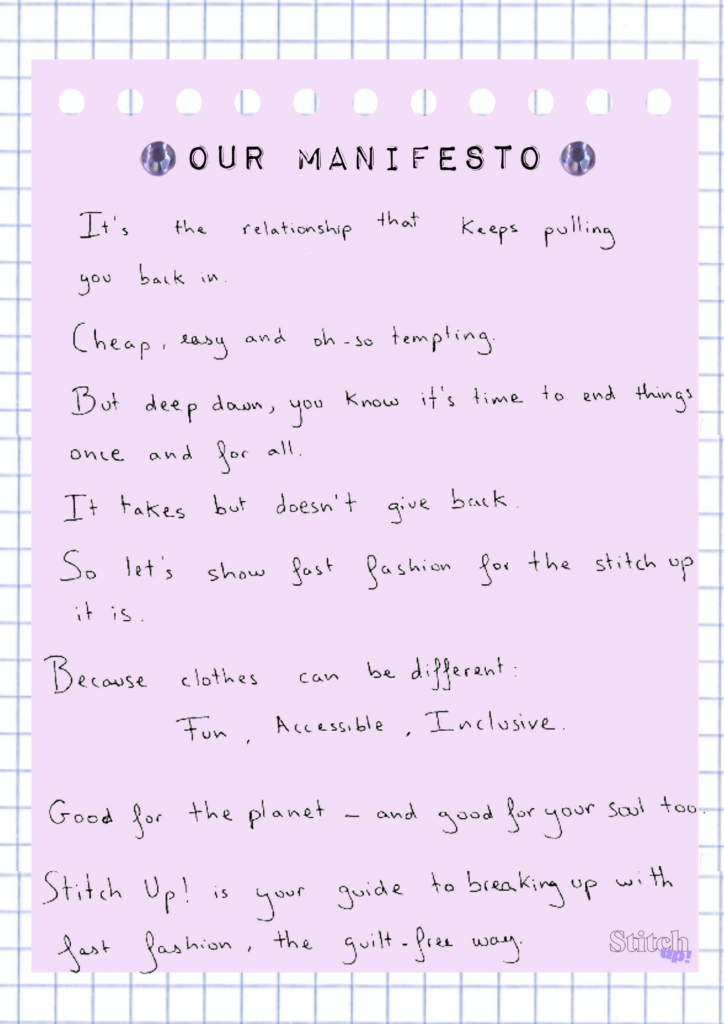 OUR MANIFESTO
It's the relationship that keeps pulling
you back in.
Cheap, easy and oh-so tempting.
But deep down, you know it's time to end things
once and for all.
It takes but doesn't give back.
So let's show fast fashion for the stitch up
it is.
Because clothes can be different:
Fun, Accessible, Inclusive.
Good for the planet – and good for your soul too.
Stitch Up! is your guide to breaking up with
fast fashion, the guilt-free way.
Stitch
up!